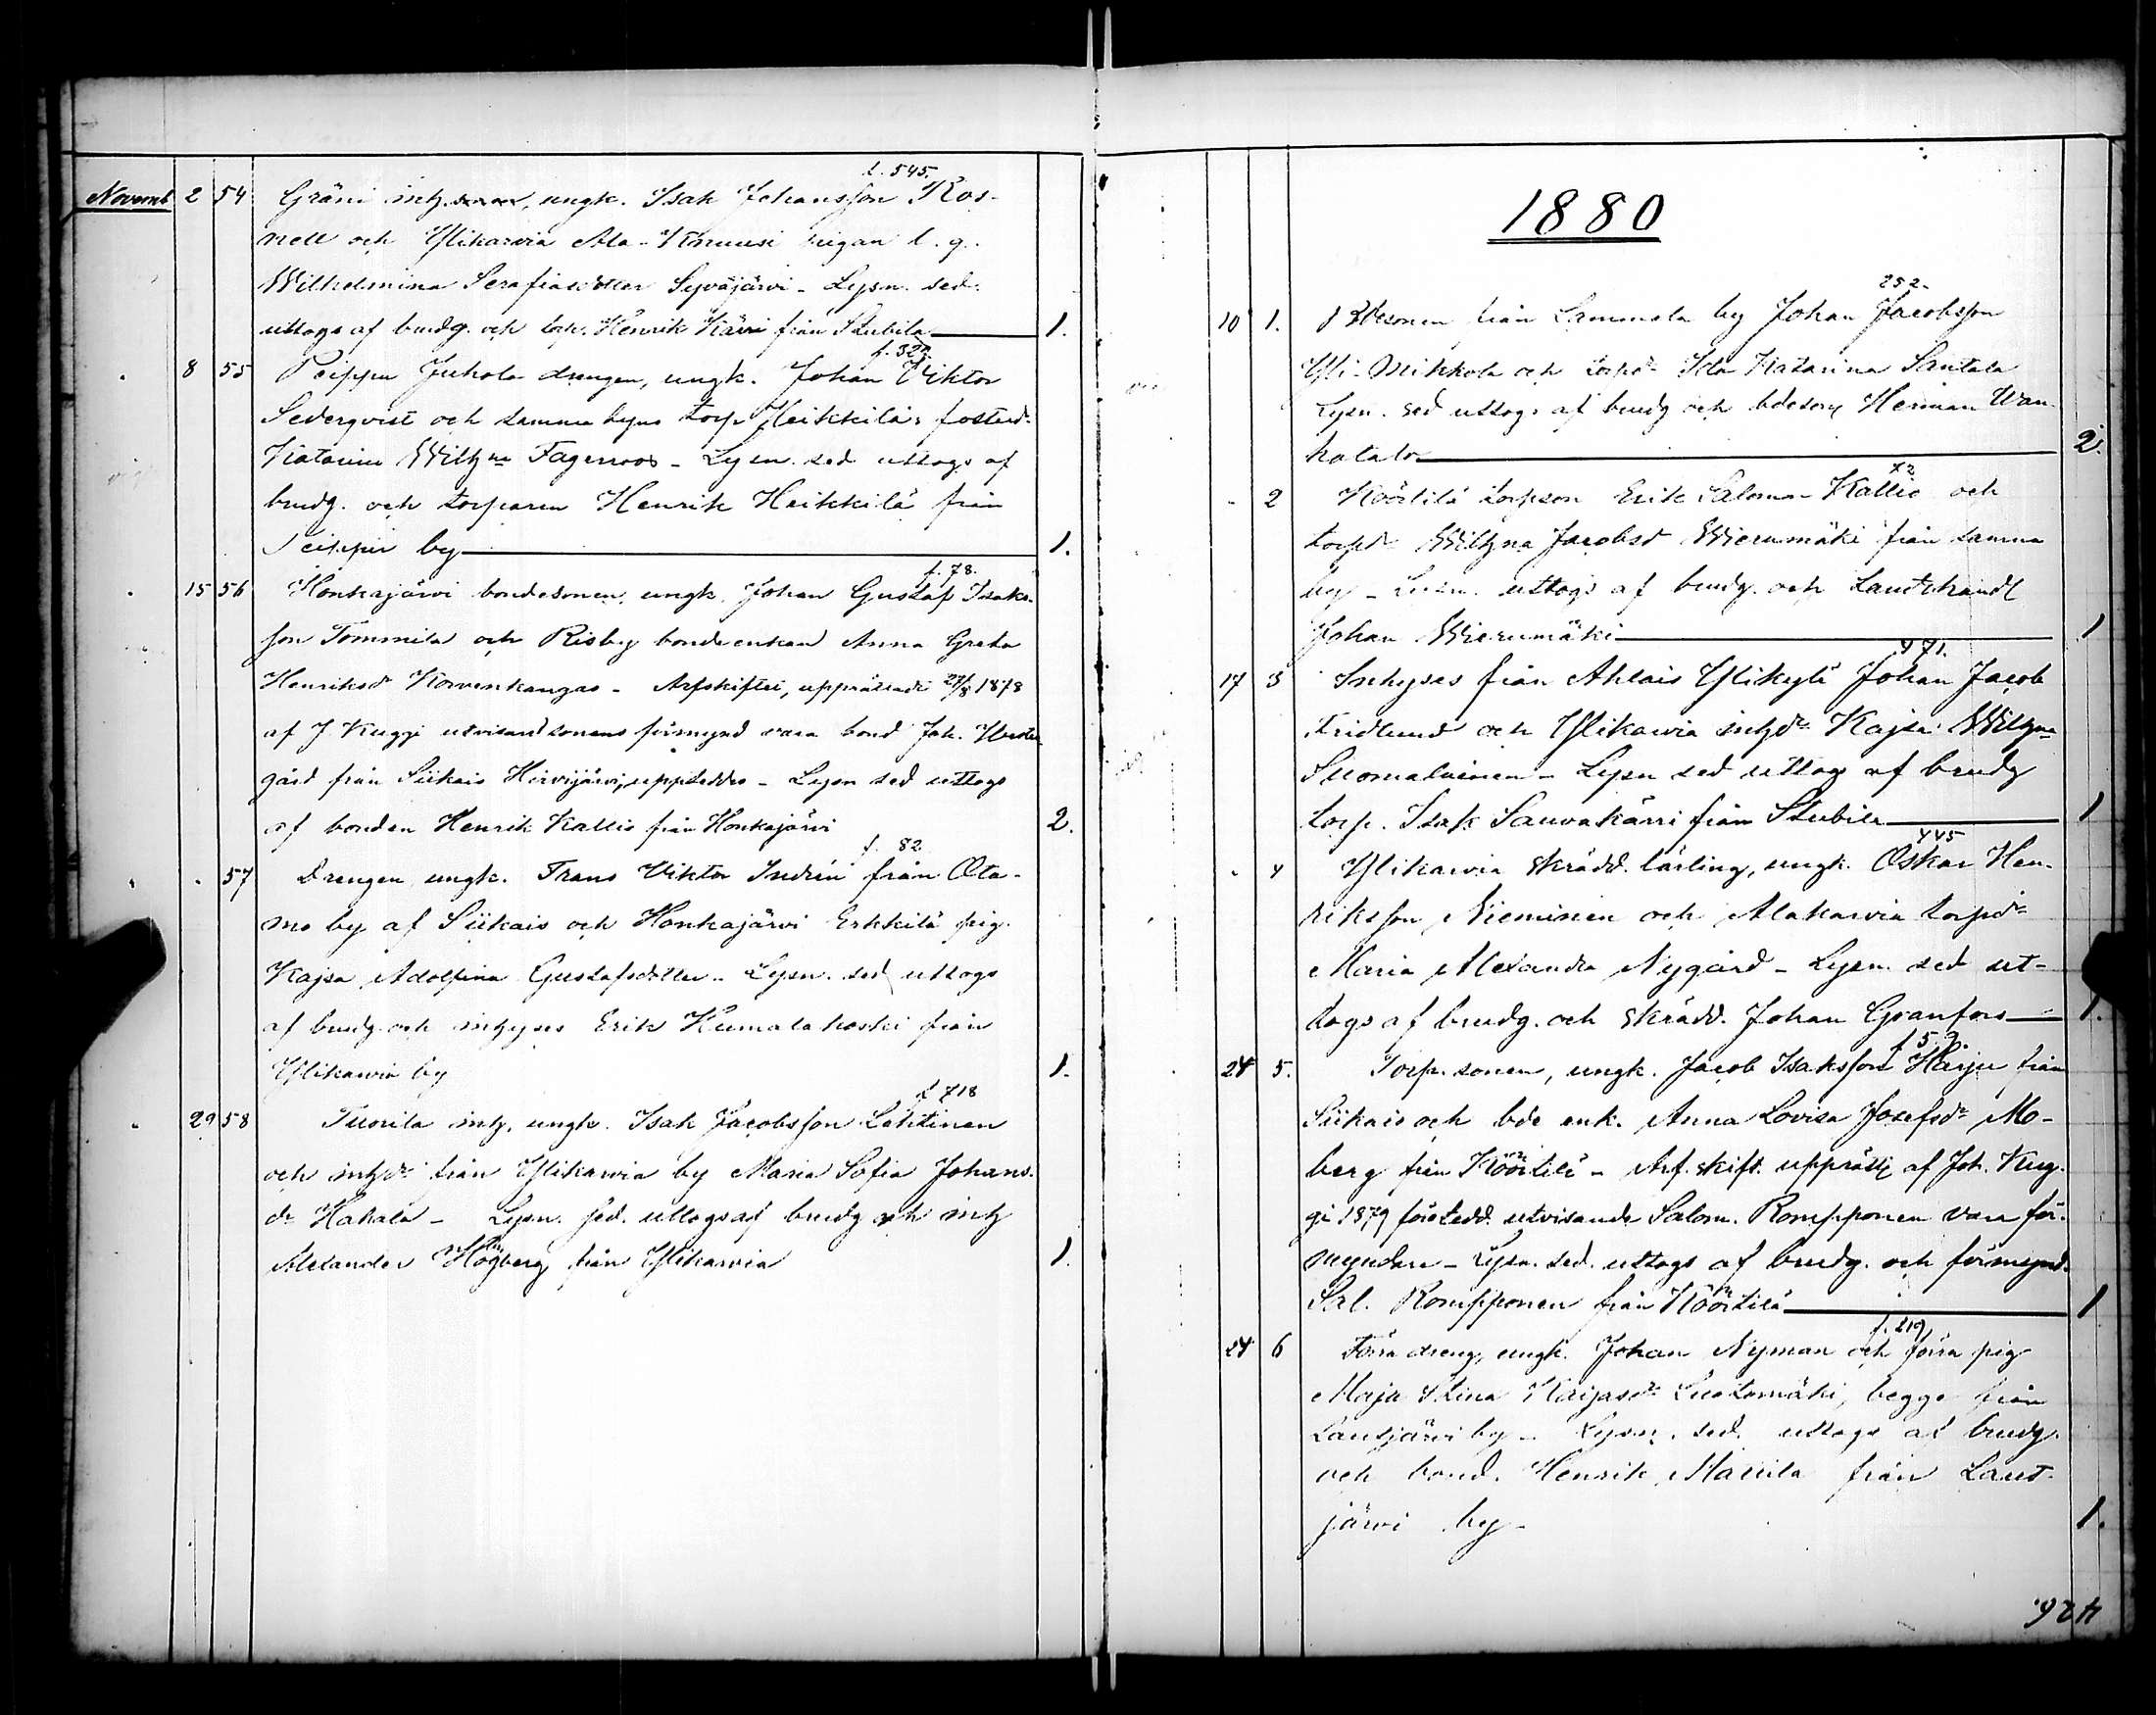 f. 545.
Novemb 2 54 Gräni inh. ungk. Isak Johansson Ros-
nell och Ylikarvia Ala-Knuusi pigan l. q.
Wilhelmina Serafiasdotter Syväjärvi - Lysn. sed.
uttogs af brudg. och torp. Henrik Kärri från Stubila 1.
f. 322.
8 55 Peippu Juhola drengen, ungk. Johan Viktor
Sederqvist och samma byns torp Heikkilä fosterd.
Katarina Wilh:na Fagerroos - Lysn. sed uttogs af
brudg. och torparen Henrik Heikkilä från
Peippu by 1.
f. 78.
15 56 Honkajärvi bondesonen, ungk. Johan Gustaf Isaks-
son Tommila och Risby bondeenkan Anna Greta
Henriksd Korvenkangas - Arfskiftet, upprättadt 1878
af J Kuggi utvisand sonens förmynd vara bond Joh.
gård från Siikais Hirvijärvi, uppteddes - Lysn sed uttogs
af bonden Henrik Kallio från Honkajärvi 2.
f. 82.
57 Drengen ungk. Frans Viktor Indrén från Ota-
mo by af Siikais och Honkajärvi Erkkilä pig.
Kajsa Adolfina Gustafsdotter - Lysn. sed uttogs
af brudg. och inhyses Erik Kumalakoski från
Ylikarvia by 1.
f 718
29 58 Tuorila inh. ungk. Isak Jacobsson Lehtinen
och inhdr från Ylikarvia by Maria Sofia Johans-
dr Hakala - Lysn. sed. uttogs af brudg och inh
Alexander Högberg från Ylikarvia 1.
1880
252.
10 1. Bdesonen från Lammela by Johan Jacobsson
Yli-Mikkola och torpdr Ida Katarina Santala
Lysn. sed uttogs af brudg och bdeson Herman Wan-
hatalo 2.
72
2 Köörtilä torpson Erik Saloma-Kallio och
torpdr Wilh:na Jacobsd Wierumäki från samma
by - Lysn. uttogs af brudg. och Landthandl
Johan Wierumäki 1
471.
17 3 Inhyses från Ahlais Ylikylä Johan Jacob
Fridlund och Ylikarvia inhdr Kajsa Wilh:na
Suomalainen - Lysn sed uttogs af brudg
torp. Isak Sauvakärri från Stubila 1
445
4 Ylikarvia skrädd. lärling, ungk. Oskar Hen-
riksson Nieminen och Alakarvia torpdr
Maria Alexandra Nygård - Lysn. sed ut-
togs af brudg. och skrädd. Johan Granfors 1.
24 5. Torp. sonen, ungk. Jacob Isaksson Harju från
Siikais och bde enk. Anna Lovisa Josefsdr Mo-
berg från Köörtilä - Arf. skift. upprätt af Joh. Kug-
gi 1879 företedd. utvisande Salom. Rompponen vara för-
myndare - Lysn. sed. uttogs af brudg. och förmynd.
Sal. Rompponen från Köörtilä 1
f. 219
24 6 Förra dreng, ungk. Johan Nyman och förra pig
Maja Stina Luotomäki, begge från
Lautjärvi by - Lysn. sed. uttogs af brudg.
och bond. Henrik Mattila från Laut-
järvi by - 1.
426.